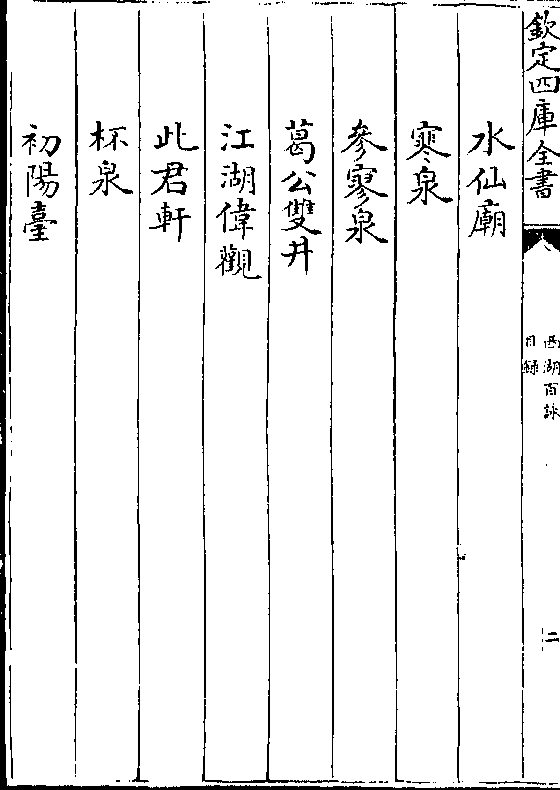 欽定四庫全書
西湖百詠
目錄
二
水仙廟
寒泉
參寥泉
葛公雙井
江湖偉觀
此君軒
杯泉
初陽臺